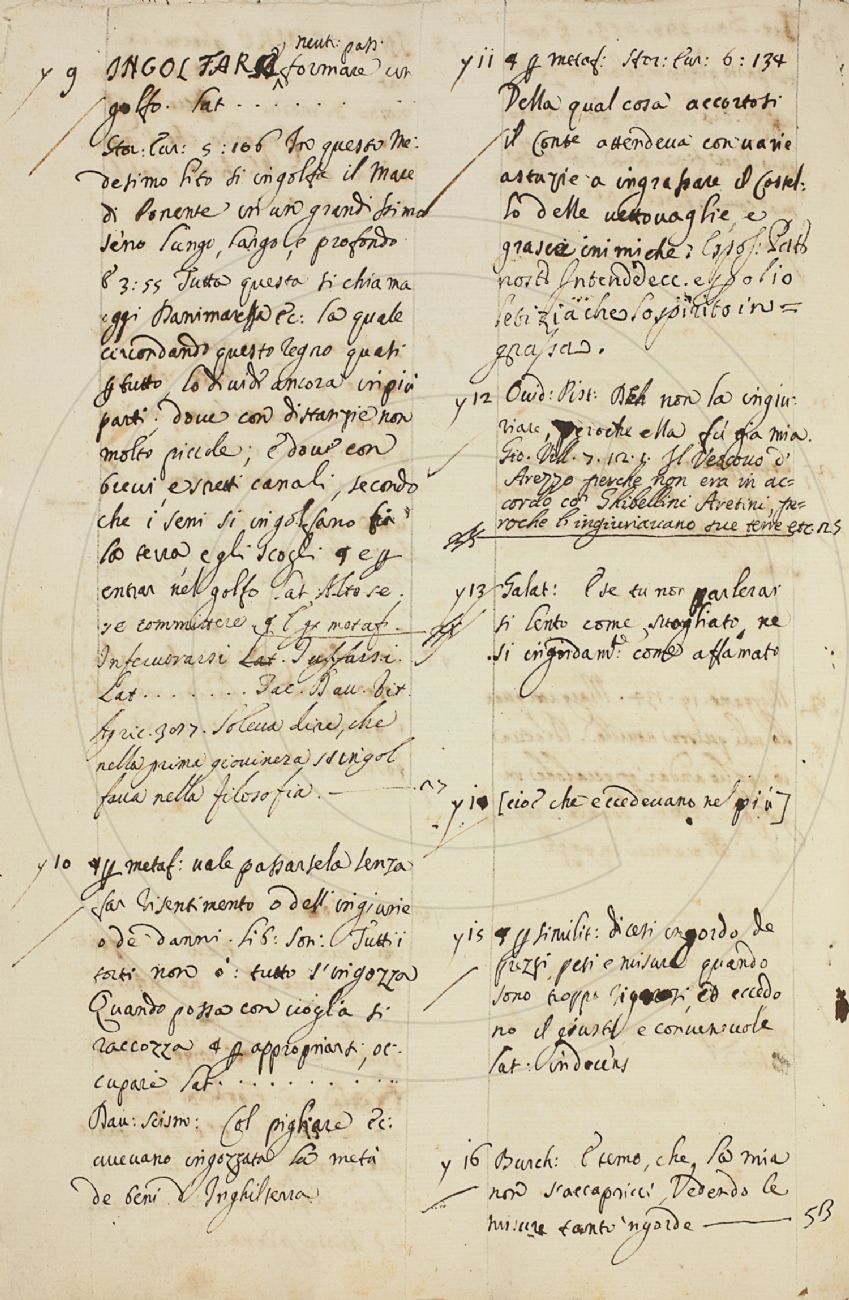 y 9 INGOLFARE neut: pass:
formare un
golfo. Lat . . . . . . . .
Stor: Eur: 5: 106 In questo Me:
desimo lito si ingolfa il Mare
di Ponente in un grandissimo
seno lungo, largo, e profondo
E 3: 55 Tutta questa si chiama
oggi Danimarcha &c: la quale
circondando questo regno quasi
tutto, lo divide ancora in più
parti; dove con distanzie non
molto piccole; e dove con
brevi, e stretti canali, secondo
che i seni si ingolfano fra
la terra e gli scogli ¶ e p
entrar nel golfo Lat. Alto se.
se committere ¶ E p metaf.
Infervorarsi Lat.
Lat . . . . . . . . Dav. Vit.
Agric. 397. Soleva dire, che
nella prima giovineza s'ingol
fava nella filosofia. —
y 10 ¶ p metaf: vale passarsela senza
far risentimento o dell'ingiurie
o de danni. Lib: Son: Tutti i
torti non o: tutto s'ingozza
Quando possa con voglia si
raccozza ¶ p appropriarsi, oc-
cupare Lat . . . . . . . . . .
Dav: Scism: Col pigliare &c:
avevano ingozzata la metà
de beni d Inghilterra
y 11 ¶ p metaf: Stor: Eur: 6: 134
Della qual cosa accortosi
il Conte attendeva con varie
astuzie a ingrassare il Castel:
lo delle vettovaglie, e
grascie inimiche:
letizia che lo spirito in=
grassa.
y 12 Ovid: Pist: Deh non la ingiu:
riare, peroche ella fù già mia.
Gio. Vill. 7. 12. Il Vescovo d'
Arezzo perche non era in ac-
cordo co' Ghibellini Aretini, pe-
roche l'ingiuriavano sue terre etc.
y 13 Galat: E se tu non parlerai
si lento come svogliato, ne
si ingordam.e come affamato
y 14 [cioè che eccedevano nel più]
y 15 ¶ p similit: dicesi ingordo de
prezzi, pesi e misure quando
sono troppo rigorosi, ed eccedo
no il giusto e convenevole
Lat:
y 16 Burch: E temo, che, la mia
non s'accapricci, Vedendo le
misure tanto 'ngorde —